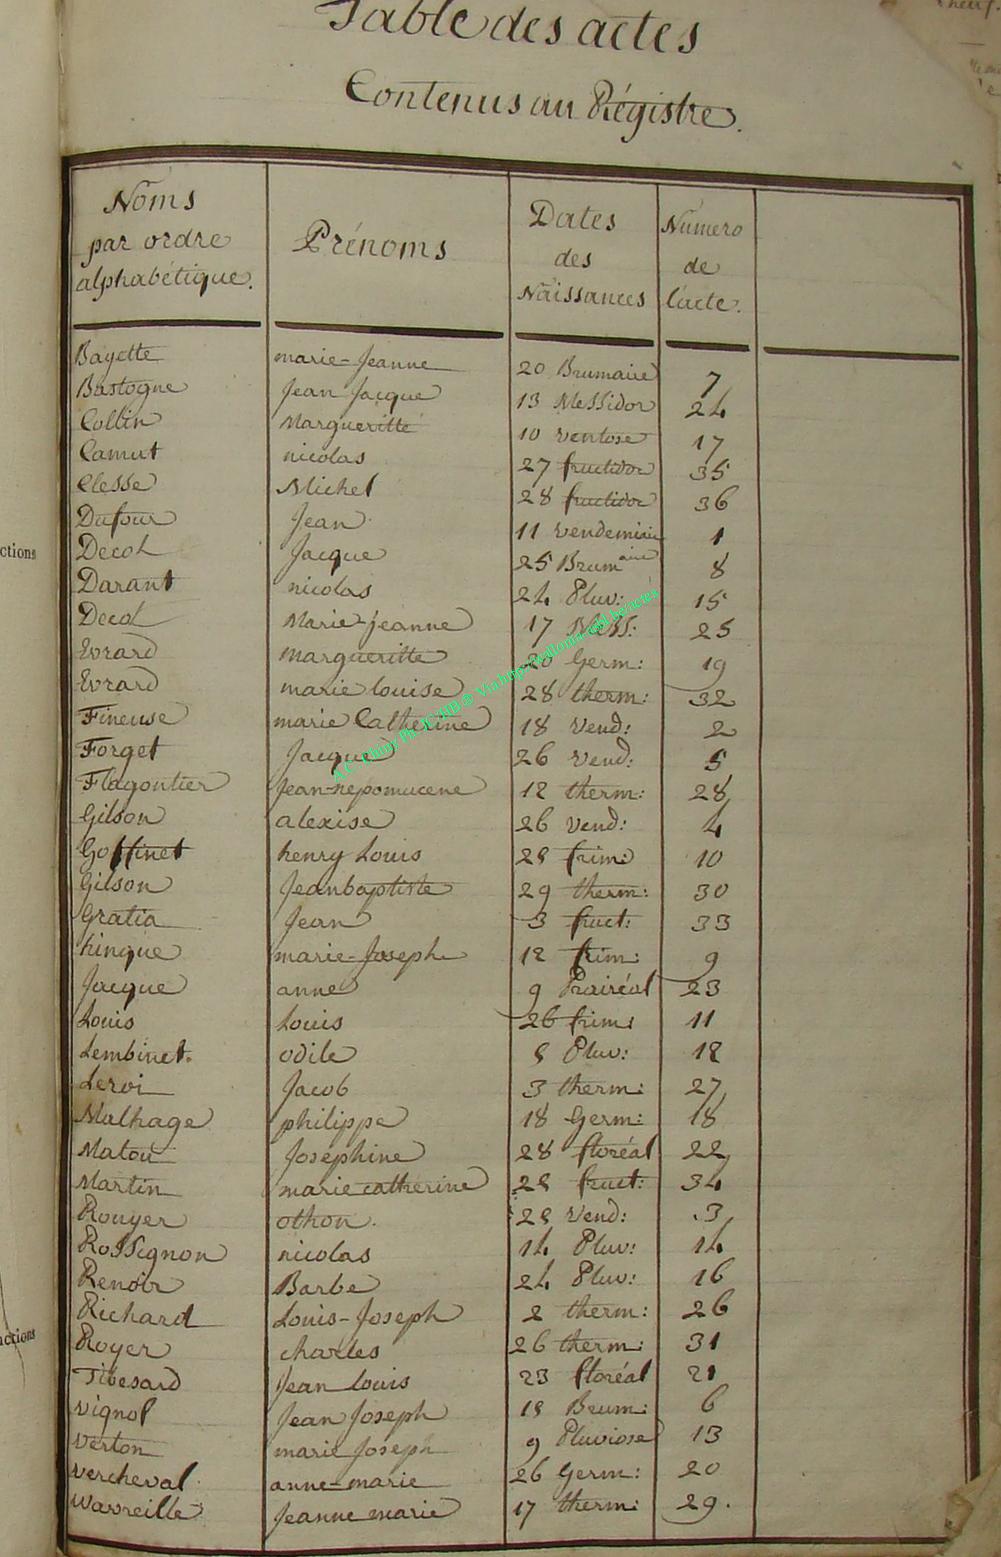 Table des actes
Contenus au Régistre.
Noms par ordre alphabétique. Prénoms Dates des Naissances Numero de l'acte.
Bayette marie-Jeanne 20 Brumaire 7
Bastogne Jean Jacque 13 Messidor 24
Collin Margueritte 10 ventose 17
Camut nicolas 27 fructidor 35
Clesse Michel 28 fructidor 36
Dufour Jean 11 vendemiaire 1
Decol Jacque 25 Brumaire 8
Darant nicolas 24 Pluv: 15
Decol Marie-jeanne 17 Mess: 25
Evrard margueritte 20 Germ: 19
Evrard marie louise 28 therm: 32
Fineuse marie Catherine 18 vend: 2
Forget Jacque 26 vend: 5
Flagontier Jean-nepomucene 12 therm: 28
Gilson alexise 26 vend: 4
Goffinet henry Louis 25 frim: 10
Gilson Jeanbaptiste 29 therm: 30
Gratia Jean 3 fruct: 33
hinque marie-Joseph 12 frim: 9
Jacque anne 9 Prairéal 23
Louis Louis 26 frim: 11
Lembinet. odile 5 Pluv: 12
Leroi Jacob 3 therm: 27
Malhage philippe 18 Germ: 18
Matou Josephine 28 floréal 22
Martin marie catherine 25 fruct: 34
Rouyer othon. 25 vend: 3
Rossignon nicolas 14 Pluv: 14
Renoir Barbe 24 Pluv: 16
Richard Louis-Joseph 2 therm: 26
Royer charles 26 therm: 31
Tibesard Jean Louis 23 floréal 21
vignol Jean Joseph 15 Brum: 6
verton marie Joseph 9 Pluviose 13
vercheval anne-marie 26 Germ: 20
Wavreille Jeanne marie 17 therm: 29.
ctions